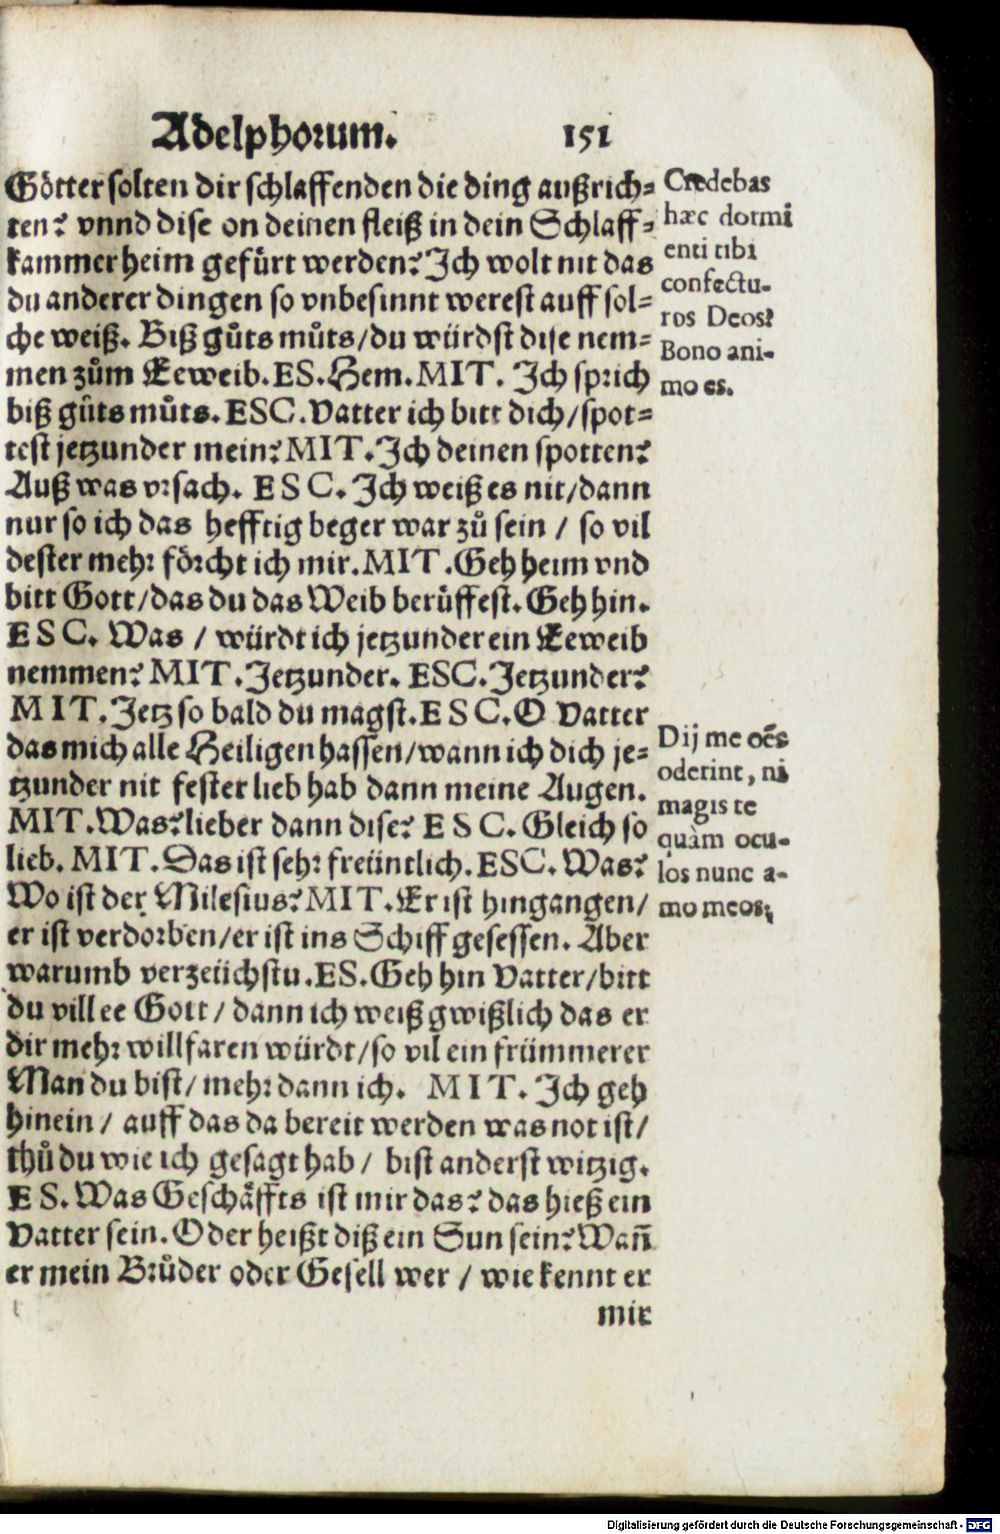 Adelphorum. 151
Götter solten dir schlaffenden die ding außrich=
ten? vnnd dise on deinen fleiß in dein Schlaff=
kammer heim gefürt werden? Ich wolt nit das
du anderer dingen so vnbesinnt werest auff sol=
che weiß. Biß gůts můts/du würdst dise nem=
men zům Eeweib. ES. Hem. MIT. Ich sprich
biß gůts můts. ESC. Vatter ich bitt dich/spot=
test jetzunder mein? MIT. Ich deinen spotten?
Auß was vrsach. ESC. Ich weiß es nit/dann
nur so ich das hefftig beger war zů sein / so vil
dester mehr förcht ich mir. MIT. Geh heim vnd
bitt Gott/das du das Weib berůffest. Geh hin.
ESC. Was / würdt ich jetzunder ein Eeweib
nemmen? MIT. Jetzunder. ESC. Jetzunder?
MIT. Jetz so bald du magst. ESC. O Vatter
das mich alle Heiligen hassen/wann ich dich je=
tzunder nit fester lieb hab dann meine Augen.
MIT. Was? lieber dann dise? ESC. Gleich so
lieb. MIT. Das ist sehr freüntlich. ESC. Was?
Wo ist der Milesius? MIT. Er ist hingangen/
er ist verdorben/er ist ins Schiff gesessen. Aber
warumb verzeüchstu. ES. Geh hin Vatter/bitt
du vill ee Gott / dann ich weiß gwißlich das er
dir mehr willfaren würdt/so vil ein frümmerer
Man du bist/ mehr dann ich. MIT. Ich geh
hinein / auff das da bereit werden was not ist/
thů du wie ich gesagt hab / bist anderst witzig.
ES. Was Geschäffts ist mir das? das hieß ein
Vatter sein. Oder heißt diß ein Sun sein? Wañ
er mein Brůder oder Gesell wer / wie kennt er
mir
Credebas
hæc dormi
enti tibi
confectu-
ros Deos?
Bono ani-
mo es.
Dij me oẽs
oderint, ni
magis te
quàm ocu-
los nunc a-
mo meos,
Digitalisierung gefördert durch die Deutsche Forschungsgemeinschaft - DFG